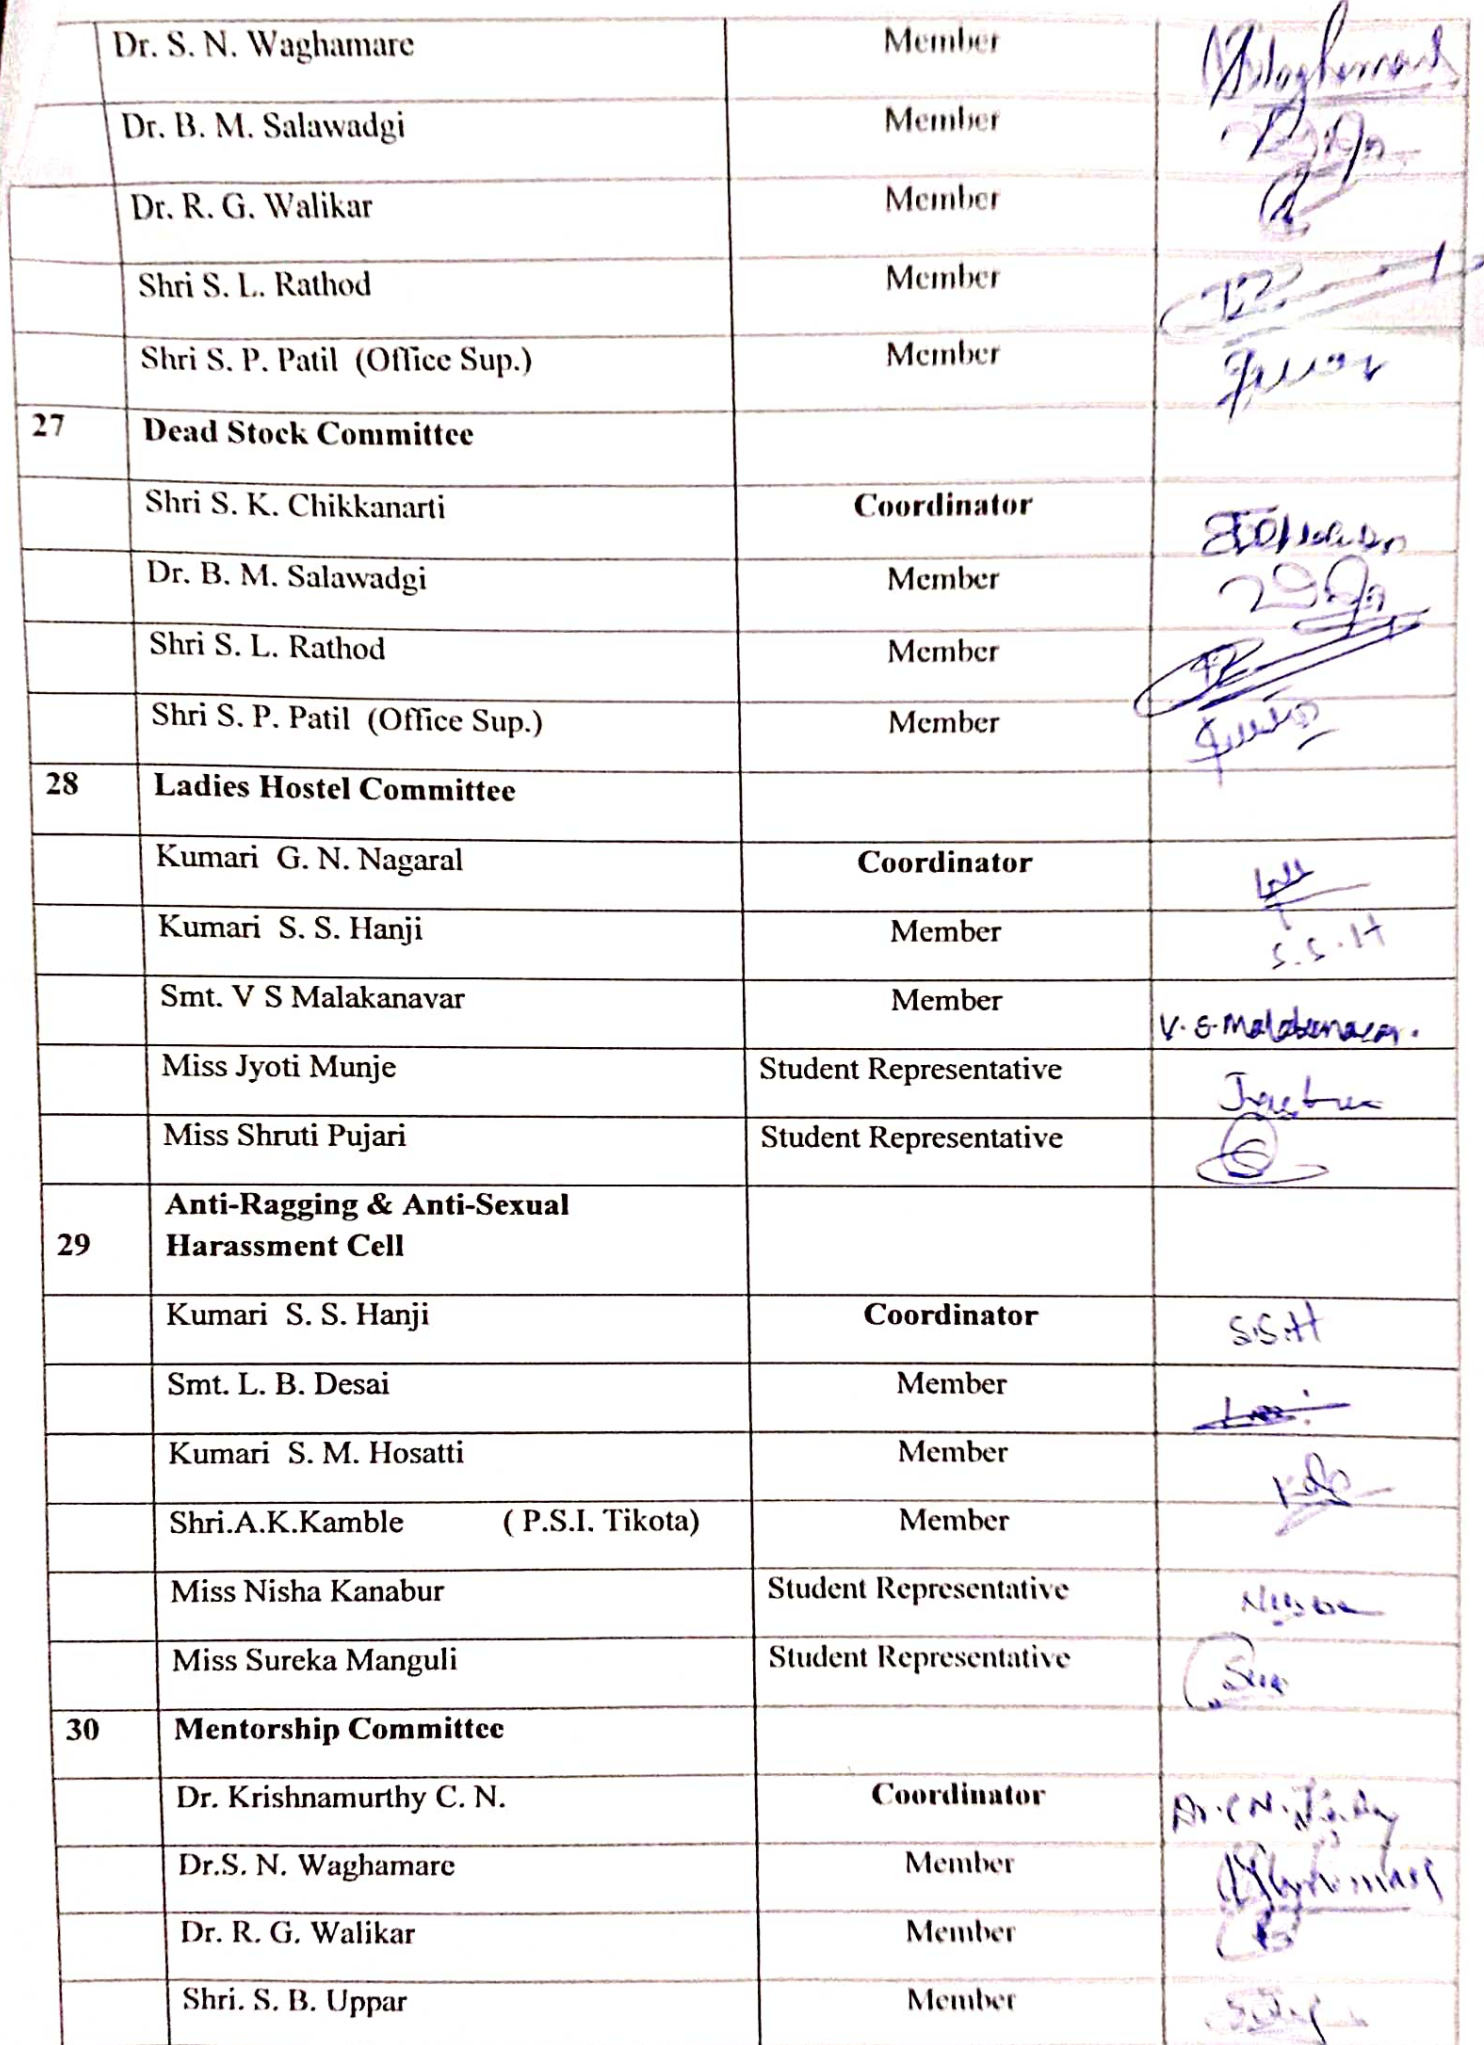 Dr. S. N. Waghamare Member
Dr. B. M. Salawadgi Member
Dr. R. G. Walikar Member
Shri S. L. Rathod Member
Shri S. P. Patil (Office Sup.) Member
27 Dead Stock Committee
Shri S. K. Chikkanarti Coordinator
Dr. B. M. Salawadgi Member
Shri S. L. Rathod Member
Shri S. P. Patil (Office Sup.) Member
28 Ladies Hostel Committee
Kumari G. N. Nagaral Coordinator
Kumari S. S. Hanji Member S.S.H
Smt. V S Malakanavar Member V. S. Malakanavar.
Miss Jyoti Munje Student Representative
Miss Shruti Pujari Student Representative
Anti-Ragging & Anti-Sexual
29 Harassment Cell
Kumari S. S. Hanji Coordinator S.S.H
Smt. L. B. Desai Member
Kumari S. M. Hosatti Member
Shri.A.K.Kamble ( P.S.I. Tikota) Member
Miss Nisha Kanabur Student Representative
Miss Sureka Manguli Student Representative
30 Mentorship Committee
Dr. Krishnamurthy C. N. Coordinator
Dr.S. N. Waghamare Member
Dr. R. G. Walikar Member
Shri. S. B. Uppar Member